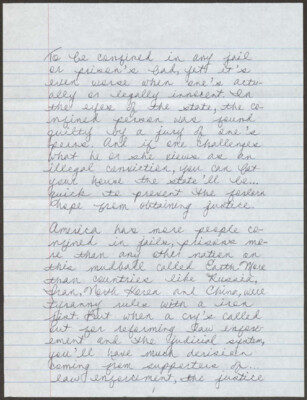 To be confined in any jail
or prison's bad, yet it's
even worse when one's actu-
ally or legally innocent. In
the eyes of the state, the co-
nfined person was found
guilty by a jury of one's
peers. And if one challenges
what he or she views as an
illegal conviction, you can bet
your house the state'll be...
quick to prevent the person
hope from obtaining justice
America has more people co-
nfined in jails, prisons mo-
re than any other nation on
this mudball called Earth. More
than countries like Russia,
Iran, North Korea and China, were
tyranny rules with a iron
fist. But when a cry's called
out for reforming law enforc-
ement and the judicial system,
you'll have much derision
coming from supporters of
law enforcement, the justice
1